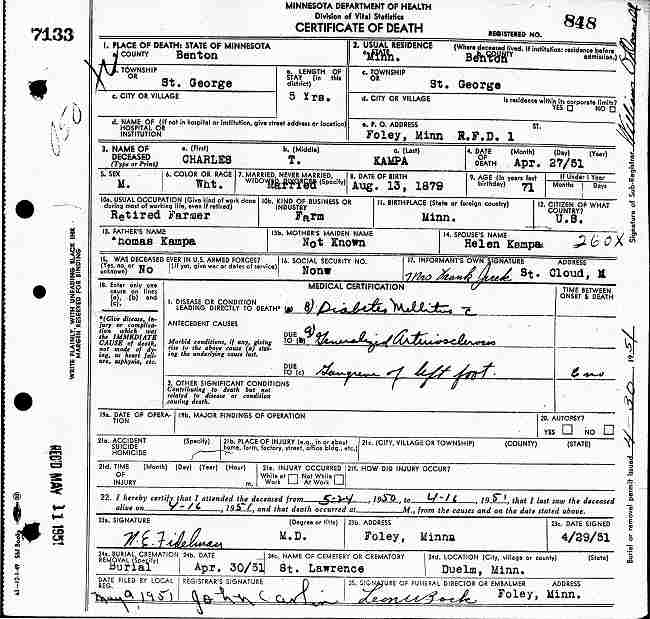 MINNESOTA DEPARTMENT OF HEALTH
Division of Vital Statistics
CERTIFICATE OF DEATH
7133
REGISTERED NO. 848
1. PLACE OF DEATH: STATE OF MINNESOTA
a. COUNTY Benton
2. USUAL RESIDENCE (Where deceased lived. If institution: residence before admission.)
a. STATE Minn. b. COUNTY Benton
b. TOWNSHIP OR St. George
c. LENGTH OF STAY (in this district) 5 Yrs.
c. TOWNSHIP OR St. George
c. CITY OR VILLAGE
d. CITY OR VILLAGE Is residence within its corporate limits? YES NO
d. NAME OF (If not in hospital or institution, give street address or location) HOSPITAL OR INSTITUTION
e. P. O. ADDRESS ST.
Foley, Minn R.F.D. 1
3. NAME OF DECEASED (Type or Print)
a. (First) CHARLES b. (Middle) T. c. (Last) KAMPA
4. DATE OF DEATH (Month) (Day) (Year) Apr. 27/51
5. SEX M.
6. COLOR OR RACE Wht.
7. MARRIED, NEVER MARRIED, WIDOWED, DIVORCED (Specify) Married
8. DATE OF BIRTH Aug. 13, 1879
9. AGE (In years last birthday) 71
If Under 1 Year Months Days
10a. USUAL OCCUPATION (Give kind of work done during most of working life, even if retired) Retired Farmer
10b. KIND OF BUSINESS OR INDUSTRY Farm
11. BIRTHPLACE (State or foreign country) Minn.
12. CITIZEN OF WHAT COUNTRY? U.S.
13. FATHER'S NAME homas Kampa
13b. MOTHER'S MAIDEN NAME Not Known
14. SPOUSE'S NAME Helen Kampa
260X
15. WAS DECEASED EVER IN U.S. ARMED FORCES?
(Yes, no, or unknown) No (If yes, give war or dates of service)
16. SOCIAL SECURITY NO. Nonw
17. INFORMANT'S OWN SIGNATURE ADDRESS
Mrs Frank St. Cloud, M
18. Enter only one cause on lines (a), (b), and (c).
MEDICAL CERTIFICATION
TIME BETWEEN ONSET & DEATH
1. DISEASE OR CONDITION LEADING DIRECTLY TO DEATH* (a) Diabetes Mellitus
*(Give disease, injury or complication which was the IMMEDIATE CAUSE of death, not mode of dying, as heart failure, asphyxia, etc.
ANTECEDENT CAUSES
Morbid conditions, if any, giving rise to the above cause (a) stating the underlying cause last.
DUE TO (b) Generalized Arteriosclerosis
DUE TO (c) Gangrene of left foot. 6 mo
2. OTHER SIGNIFICANT CONDITIONS
Contributing to death but not related to disease or condition causing death.
19a. DATE OF OPERATION
19b. MAJOR FINDINGS OF OPERATION
20. AUTOPSY? YES NO
21a. ACCIDENT SUICIDE HOMICIDE (Specify)
21b. PLACE OF INJURY (e.g., in or about home, farm, factory, street, office bldg., etc.)
21c. (CITY, VILLAGE OR TOWNSHIP) (COUNTY) (STATE)
21d. TIME OF INJURY (Month) (Day) (Year) (Hour) m.
21e. INJURY OCCURRED While at Work Not While At Work
21f. HOW DID INJURY OCCUR?
22. I hereby certify that I attended the deceased from 5-24, 1950, to 4-16, 1951, that I last saw the deceased
alive on 4-16, 1951, and that death occurred at M., from the causes and on the date stated above.
23a. SIGNATURE (Degree or title) N.E. Fidelman M.D.
23b. ADDRESS Foley, Minna
23c. DATE SIGNED 4/29/51
24a. BURIAL, CREMATION REMOVAL (Specify) Burial
24b. DATE Apr. 30/51
24c. NAME OF CEMETERY OR CREMATORY St. Lawrence
24d. LOCATION (City, village or county) (State) Duelm, Minn.
DATE FILED BY LOCAL REG. May 9, 1951
REGISTRAR'S SIGNATURE John Carlin
25. SIGNATURE OF FUNERAL DIRECTOR OR EMBALMER ADDRESS
Leon Bock Foley, Minn.
WRITE PLAINLY, WITH UNFADING BLACK INK
MARGIN RESERVED FOR BINDING
REC'D MAY 11 1951
Signature of Sub-Registrar William
Burial or removal permit issued 4-30 1951